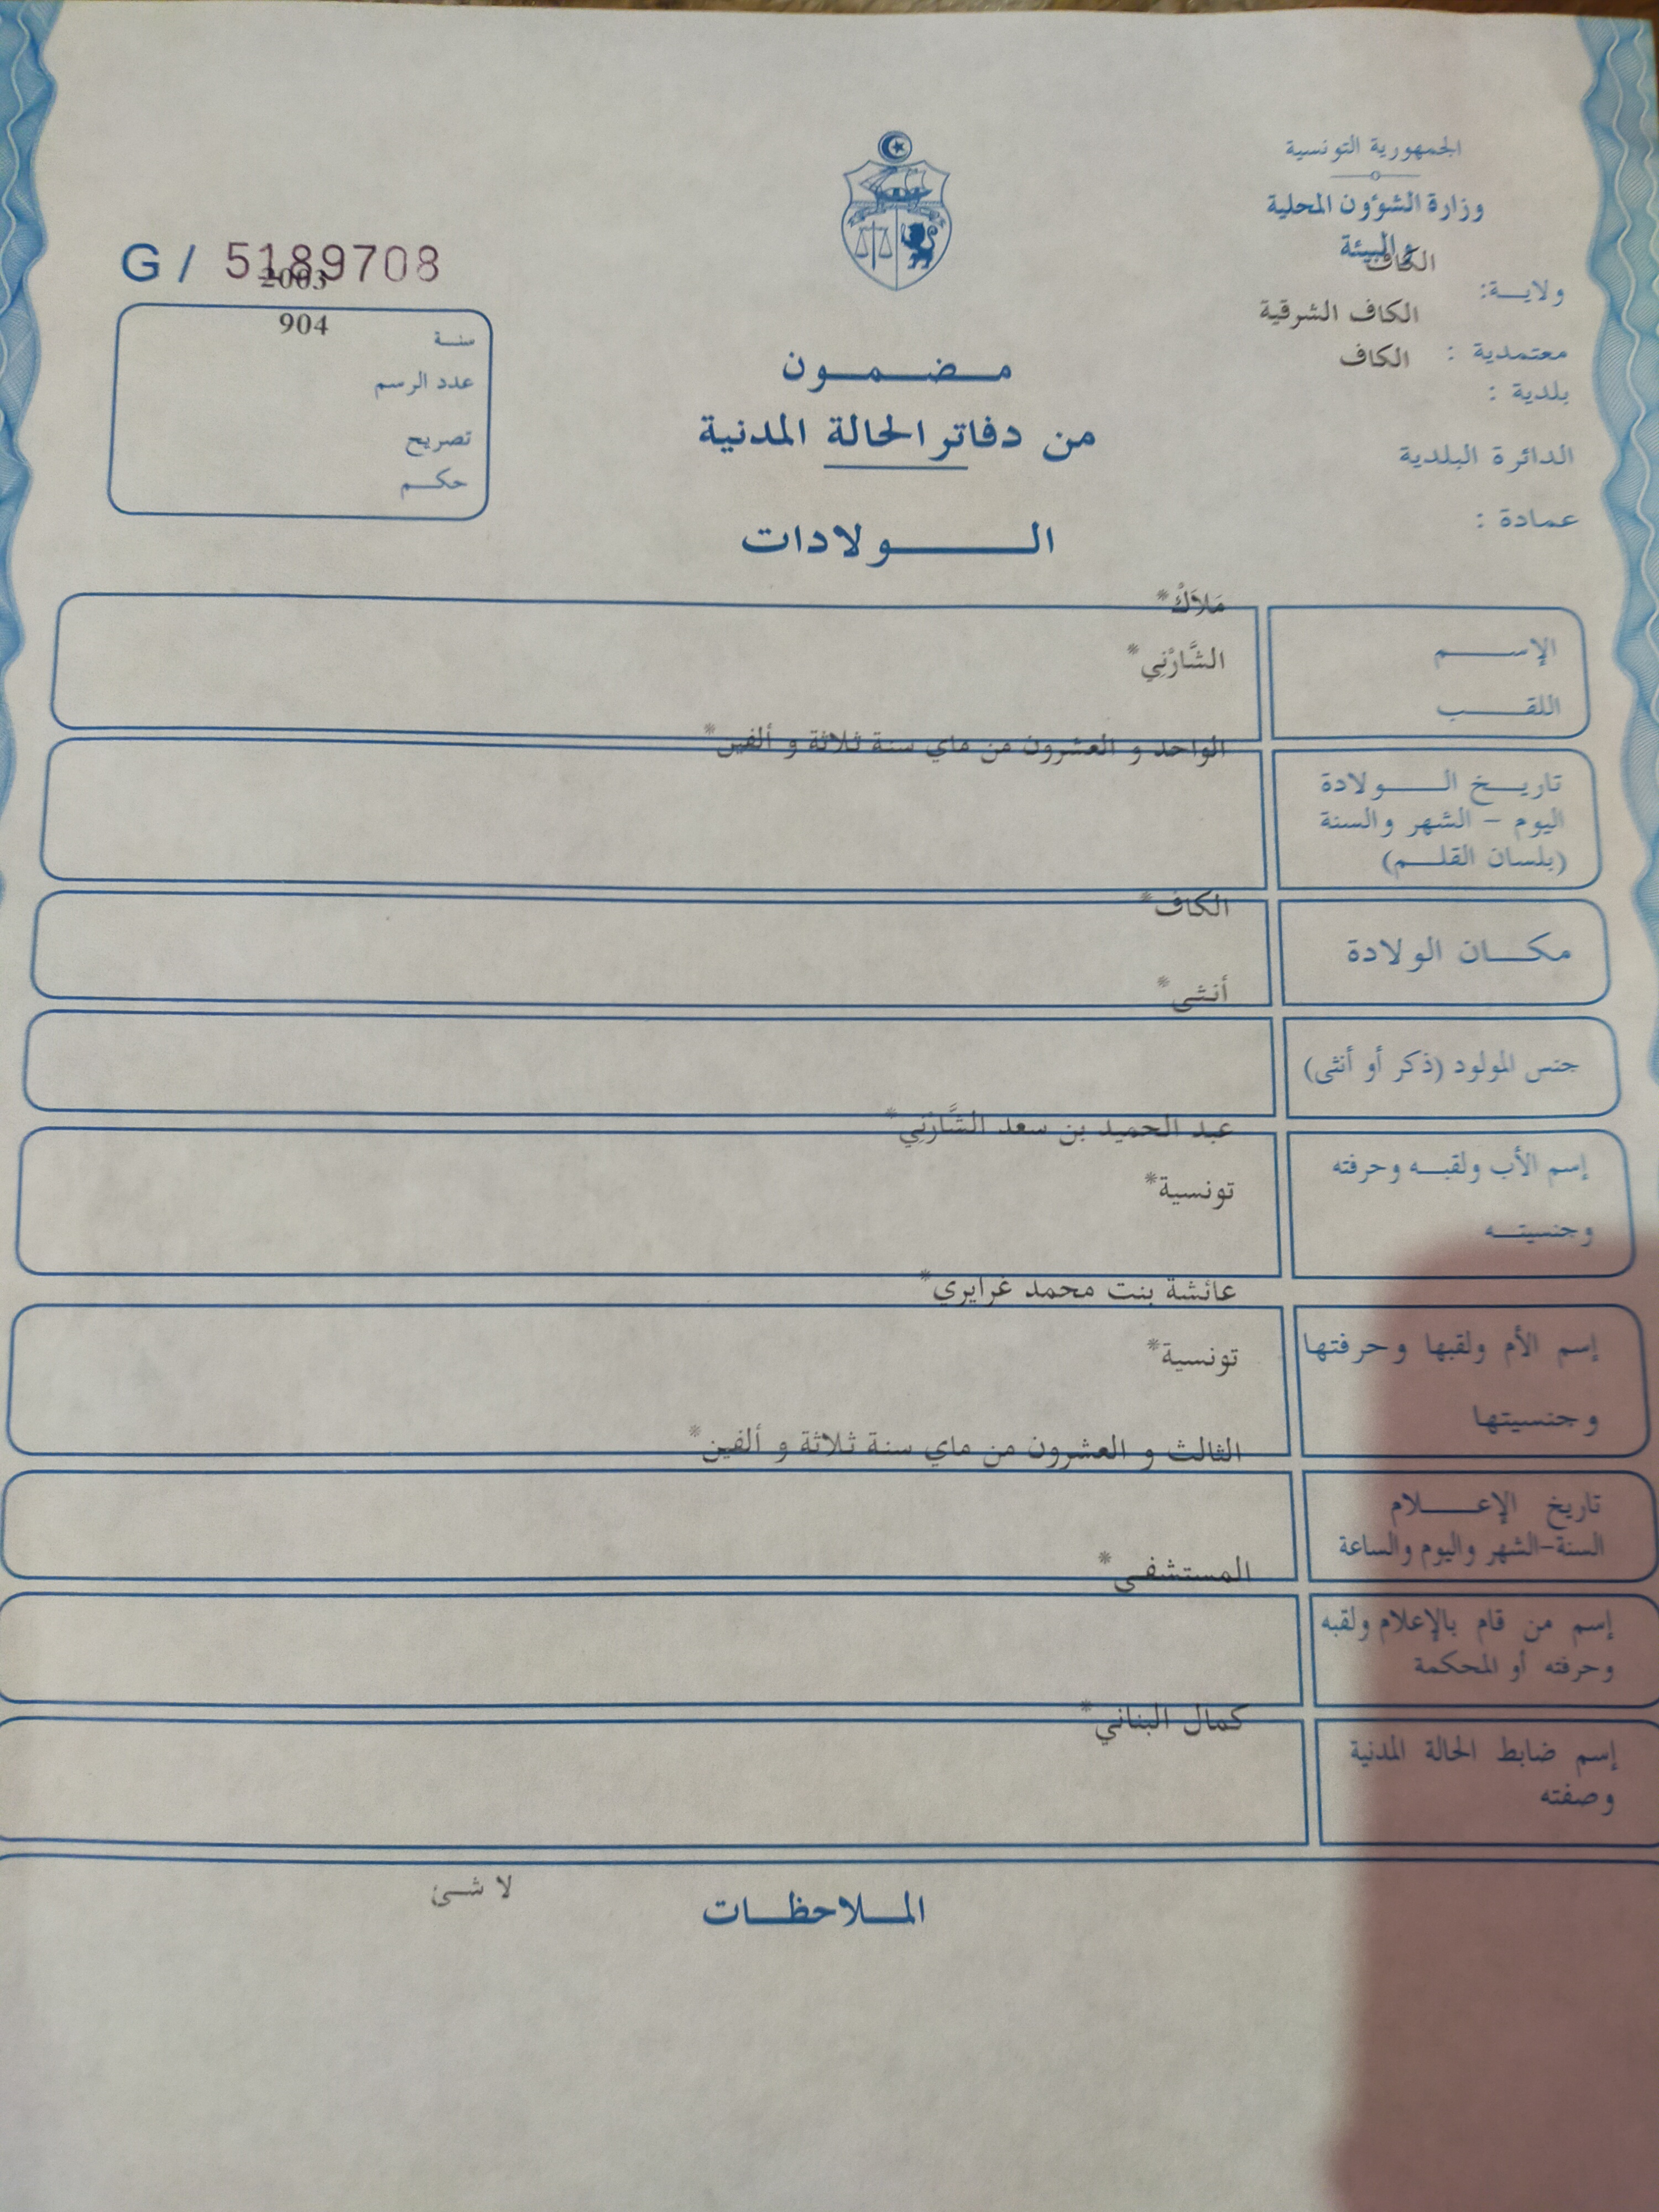 الجمهورية التونسية
وزارة الشؤون المحلية
و البيئة
ولايــة: الكاف
معتمدية : الكاف الشرقية
بلدية : الكاف
الدائرة البلدية
عمادة :
G / 5189708
2003
904
سنـة
عدد الرسم
تصريح
حكـم
مـضـمـون
من دفاتر الحالة المدنية
الـولادات
الإسـم
مَلاَكْ*
اللقـب
الشَّارْنِي*
تاريـخ الـولادة
اليوم – الشهر والسنة
(بلسان القلـم)
الواحد و العشرون من ماي سنة ثلاثة و ألفين*
مكـان الولادة
الكاف*
جنس المولود (ذكر أو أنثى)
أنثى*
إسم الأب ولقبـه وحرفته
عبد الحميد بن سعد الشَّارْنِي*
وجنسيتـه
تونسية*
إسم الأم ولقبها وحرفتها
عائشة بنت محمد غرايري*
وجنسيتها
تونسية*
تاريخ الإعـلام
السنة-الشهر واليوم والساعة
الثالث و العشرون من ماي سنة ثلاثة و ألفين*
إسم من قام بالإعلام ولقبه
وحرفته أو المحكمة
المستشفى*
إسم ضابط الحالة المدنية
وصفته
كمال البناني*
المـلاحظـات
لا شـئ